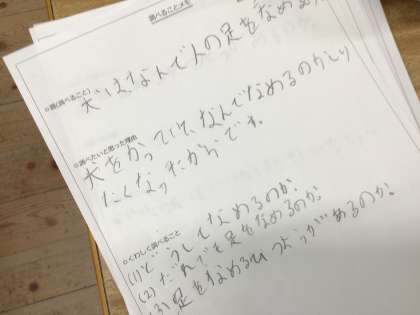 調べることメモ
◎題(調べること)
犬はなんで人の足をなめる
◎調べたいと思った理由
犬をかっていて、なんでなめるのかしり
たくなったからです。
◎くわしく調べること
(1)どうしてなめるのか。
(2)だれでも足をなめるのか。
足をなめるひつようがあるのか。